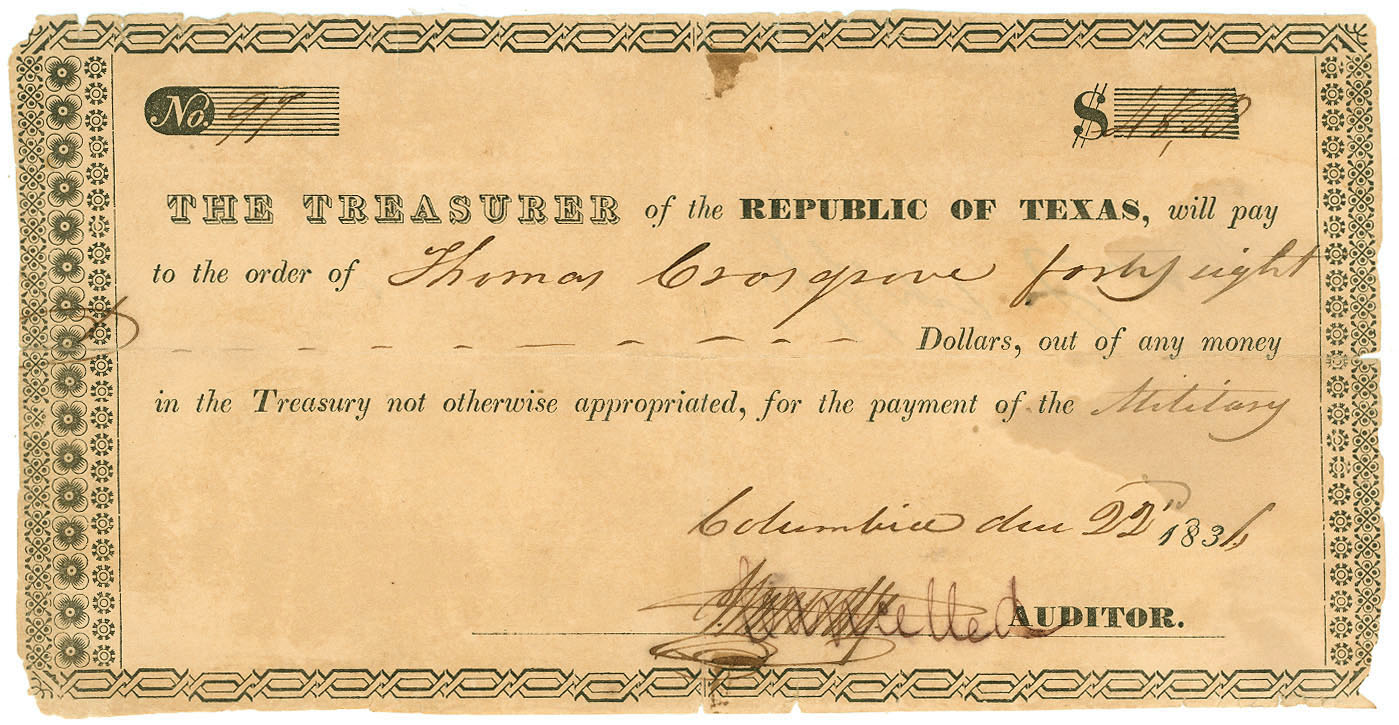 No. 97 $48,00
THE TREASURER of the REPUBLIC OF TEXAS, will pay
to the order of Thomas Crosgrove forty eight
Dollars, out of any money
in the Treasury not otherwise appropriated, for the payment of the Military
Columbia dec 22d 1836
Cancelled AUDITOR.